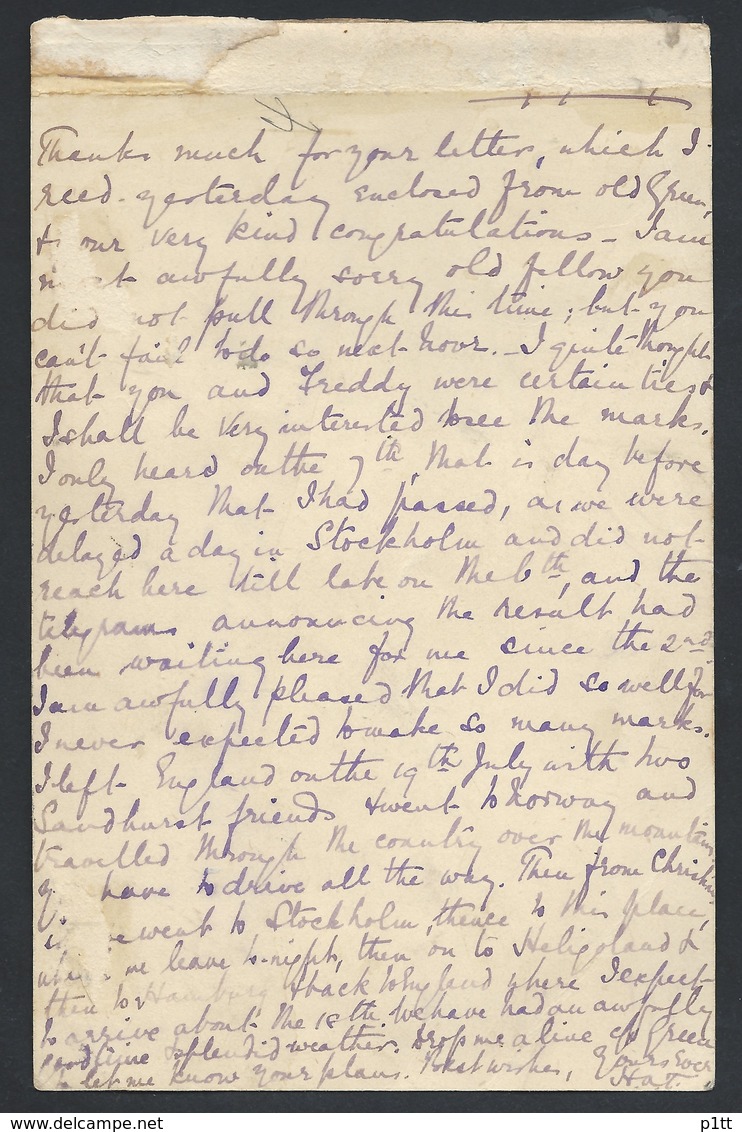 Thanks much for your letter, which I
recd. yesterday enclosed from old Green,
& our very kind congratulations – I am
awfully sorry old fellow you
did not pull through this time; but you
can't fail to do so next hour. – I quite thought
that you and Freddy were certainties &
I shall be very interested to see the marks.
I only heard on the 7th, that is day before
yesterday that I had passed, as we were
delayed a day in Stockholm and did not
reach here till late on the 6th, and the
telegrams announcing the result had
been waiting here for me since the 2nd.
I am awfully pleased that I did so well, for
I never expected to make so many marks.
I left England on the 19th July with two
Sandhurst friends & went to Norway and
travelled through the country over the mountains
have to drive all the way. Then from
went to Stockholm, thence to this place,
we leave to-night, then on to Heligoland &
then to Hamburg & back to England where I expect
to arrive about the 18th. We have had an awfully
good time & splendid weather. Drop me a line c/o Green
to let me know your plans. Best wishes, Yours Ever
p1tt